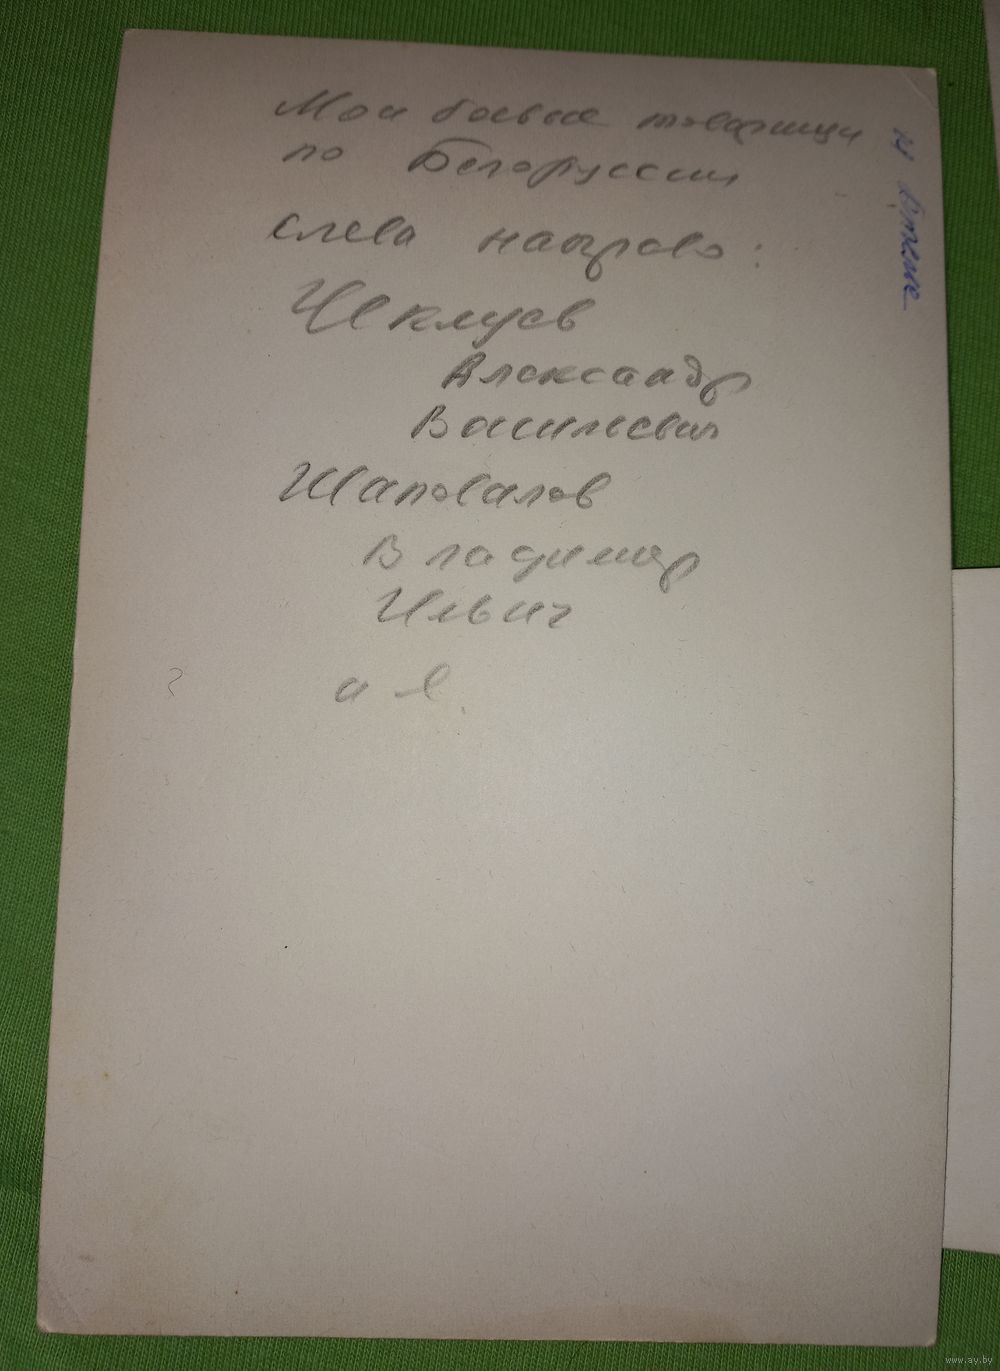 Мои боевые товарищи
по Белоруссии
слева направо:
Александр
Васильевич
Шаповалов
Владимир
Ильич
и я.
www.ay.by